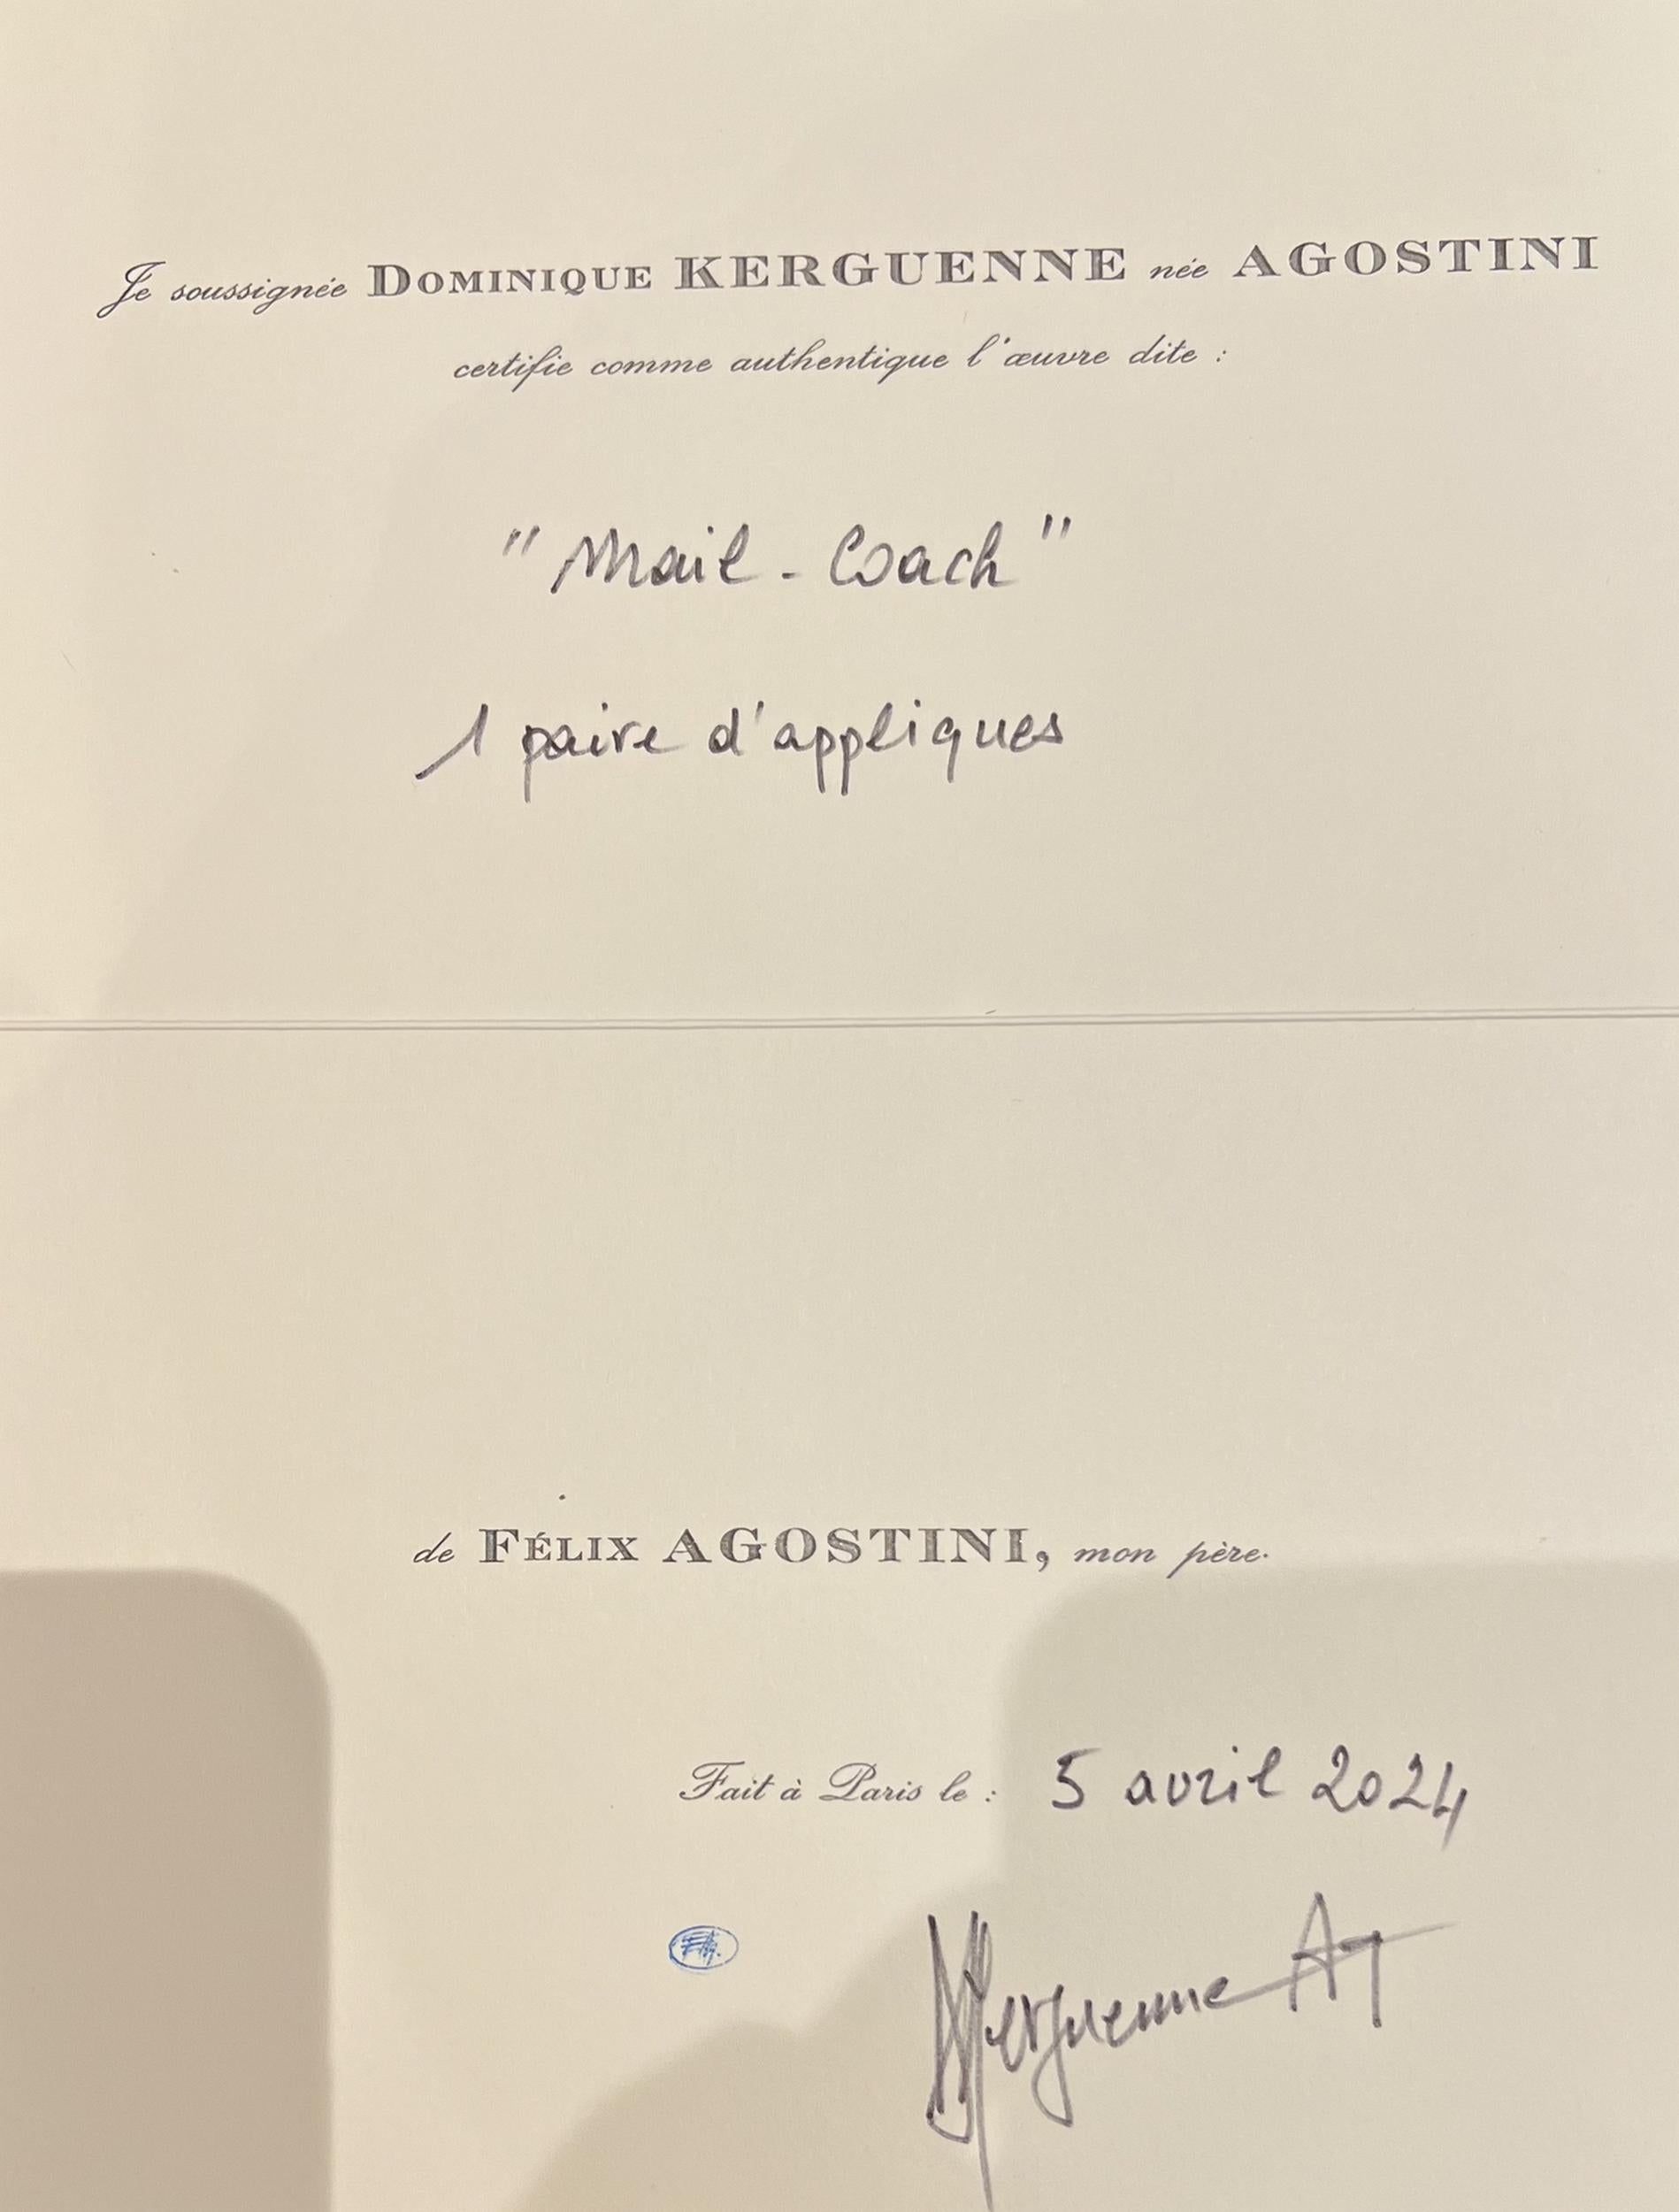 Je soussignée DOMINIQUE KERGUENNE née AGOSTINI
certifie comme authentique l'œuvre dite :
"Mail - Coach"
1 paire d'appliques
de FÉLIX AGOSTINI, mon père.
Fait à Paris le : 5 avril 2024
Kerguenne